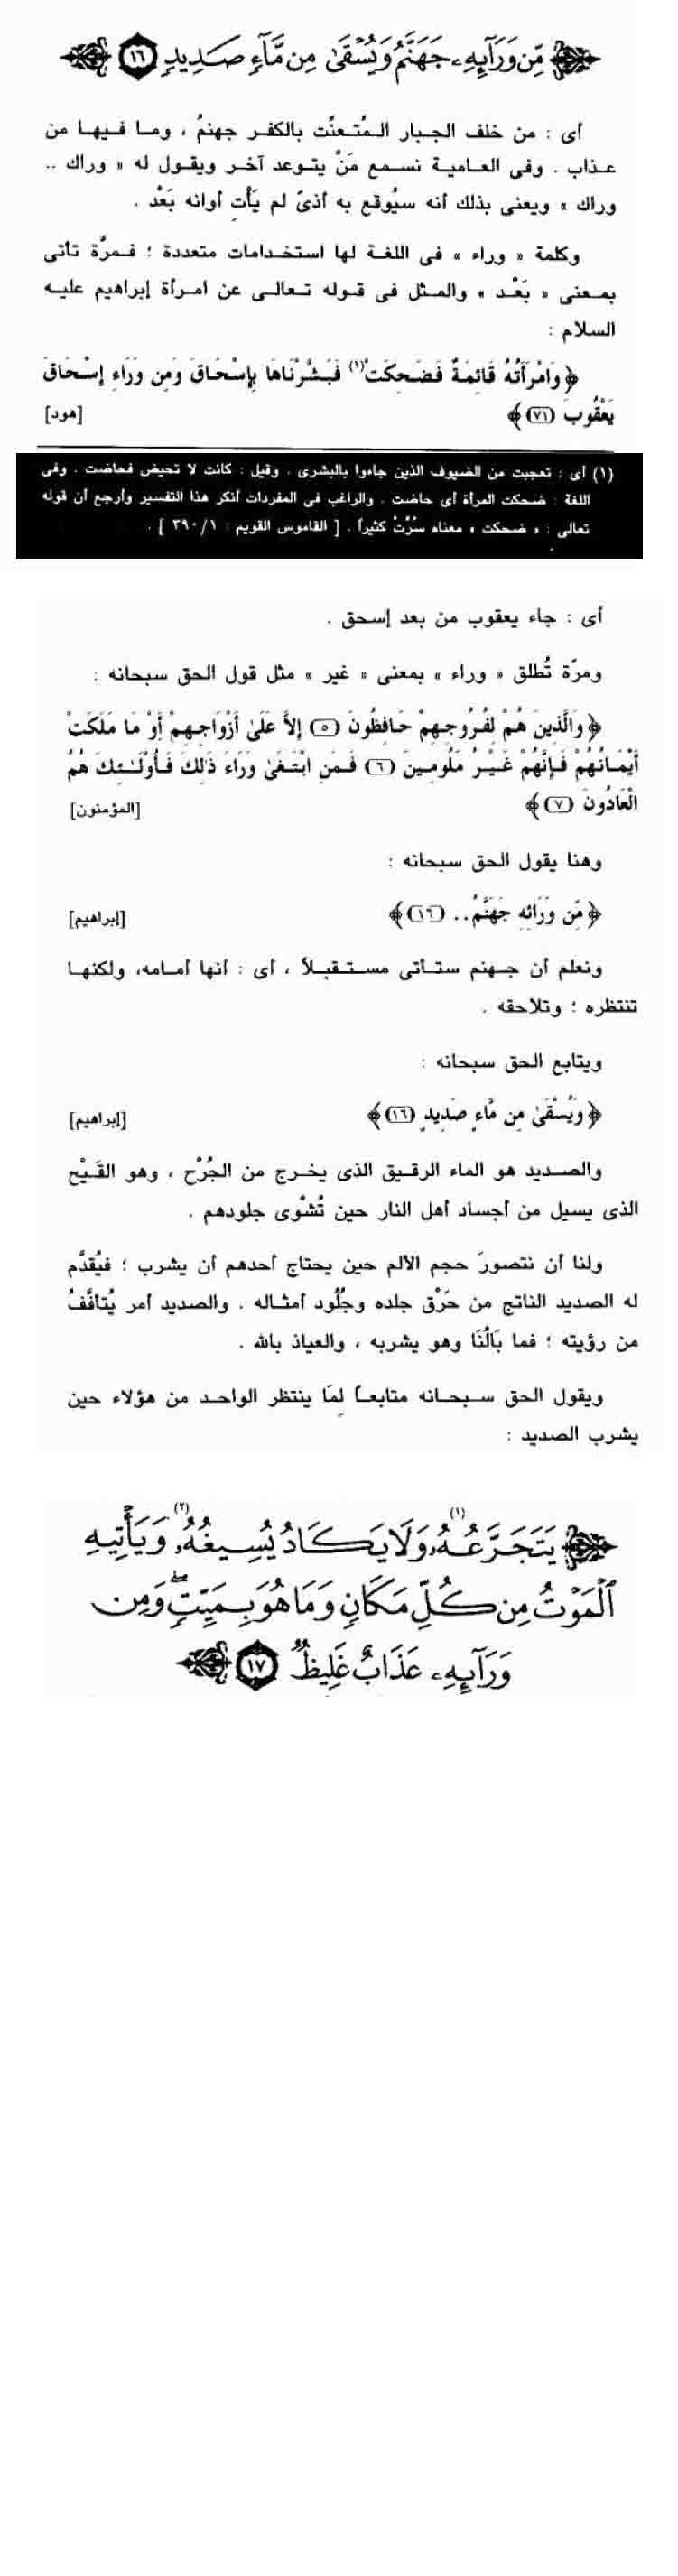 مِّن وَرَآئِهِۦ جَهَنَّمُ وَيُسْقَىٰ مِن مَّآءٍ صَدِيدٍ ١٦
أى : من خلف الجبار المُتعنِّت بالكفر جهنمُ ، وما فيها من
عذاب . وفى العامية نسمع مَنْ يتوعد آخر ويقول له « وراك ..
وراك » ويعنى بذلك أنه سيُوقع به أذىً لم يَأْتِ أوانه بَعْد .
وكلمة « وراء » فى اللغة لها استخدامات متعددة ؛ فمرَّة تأتى
بمعنى « بَعْد » والمثل فى قوله تعالى عن امرأة إبراهيم عليه
السلام :
﴿ وَامْرَأَتُهُ قَائِمَةٌ فَضَحِكَتْ(١) فَبَشَّرْنَاهَا بِإِسْحَاقَ وَمِن وَرَاءِ إِسْحَاقَ
يَعْقُوبَ (٧١) ﴾ [هود]
(١) أى : تعجبت من الضيوف الذين جاءوا بالبشرى . وقيل : كانت لا تحيض فحاضت . وفى
اللغة : ضحكت المرأة أى حاضت . والراغب فى المفردات أنكر هذا التفسير وأرجع أن قوله
تعالى : « ضحكت » معناه سُرَّتْ كثيراً . [ القاموس القويم : ٣٩٠/١ ] .
أى : جاء يعقوب من بعد إسحق .
ومرَّة تُطلق « وراء » بمعنى « غير » مثل قول الحق سبحانه :
﴿ وَالَّذِينَ هُمْ لِفُرُوجِهِمْ حَافِظُونَ (٥) إِلاَّ عَلَىٰ أَزْوَاجِهِمْ أَوْ مَا مَلَكَتْ
أَيْمَانُهُمْ فَإِنَّهُمْ غَيْرُ مَلُومِينَ (٦) فَمَنِ ابْتَغَىٰ وَرَاءَ ذَٰلِكَ فَأُوْلَـٰئِكَ هُمُ
الْعَادُونَ (٧) ﴾ [المؤمنون]
وهنا يقول الحق سبحانه :
﴿ مِّن وَرَائِهِ جَهَنَّمُ .. (١٦) ﴾ [إبراهيم]
ونعلم أن جهنم ستأتى مستقبلاً ، أى : أنها أمامه، ولكنها
تنتظره ؛ وتلاحقه .
ويتابع الحق سبحانه :
﴿ وَيُسْقَىٰ مِن مَّاءٍ صَدِيدٍ (١٦) ﴾ [إبراهيم]
والصديد هو الماء الرقيق الذى يخرج من الجُرْح ، وهو القَيْح
الذى يسيل من أجساد أهل النار حين تُشْوى جلودهم .
ولنا أن نتصورَ حجم الألم حين يحتاج أحدهم أن يشرب ؛ فيُقدَّم
له الصديد الناتج من حَرْق جلده وجُلُود أمثاله . والصديد أمر يُتأفَّفُ
من رؤيته ؛ فما بَالُنَا وهو يشربه ، والعياذ بالله .
ويقول الحق سبحانه متابعاً لِمَا ينتظر الواحد من هؤلاء حين
يشرب الصديد :
يَتَجَرَّعُهُۥ(١) وَلَا يَكَادُ يُسِيغُهُۥ(٢) وَيَأْتِيهِ
ٱلْمَوْتُ مِن كُلِّ مَكَانٍ وَمَا هُوَ بِمَيِّتٍ ۖ وَمِن
وَرَآئِهِۦ عَذَابٌ غَلِيظٌ ١٧